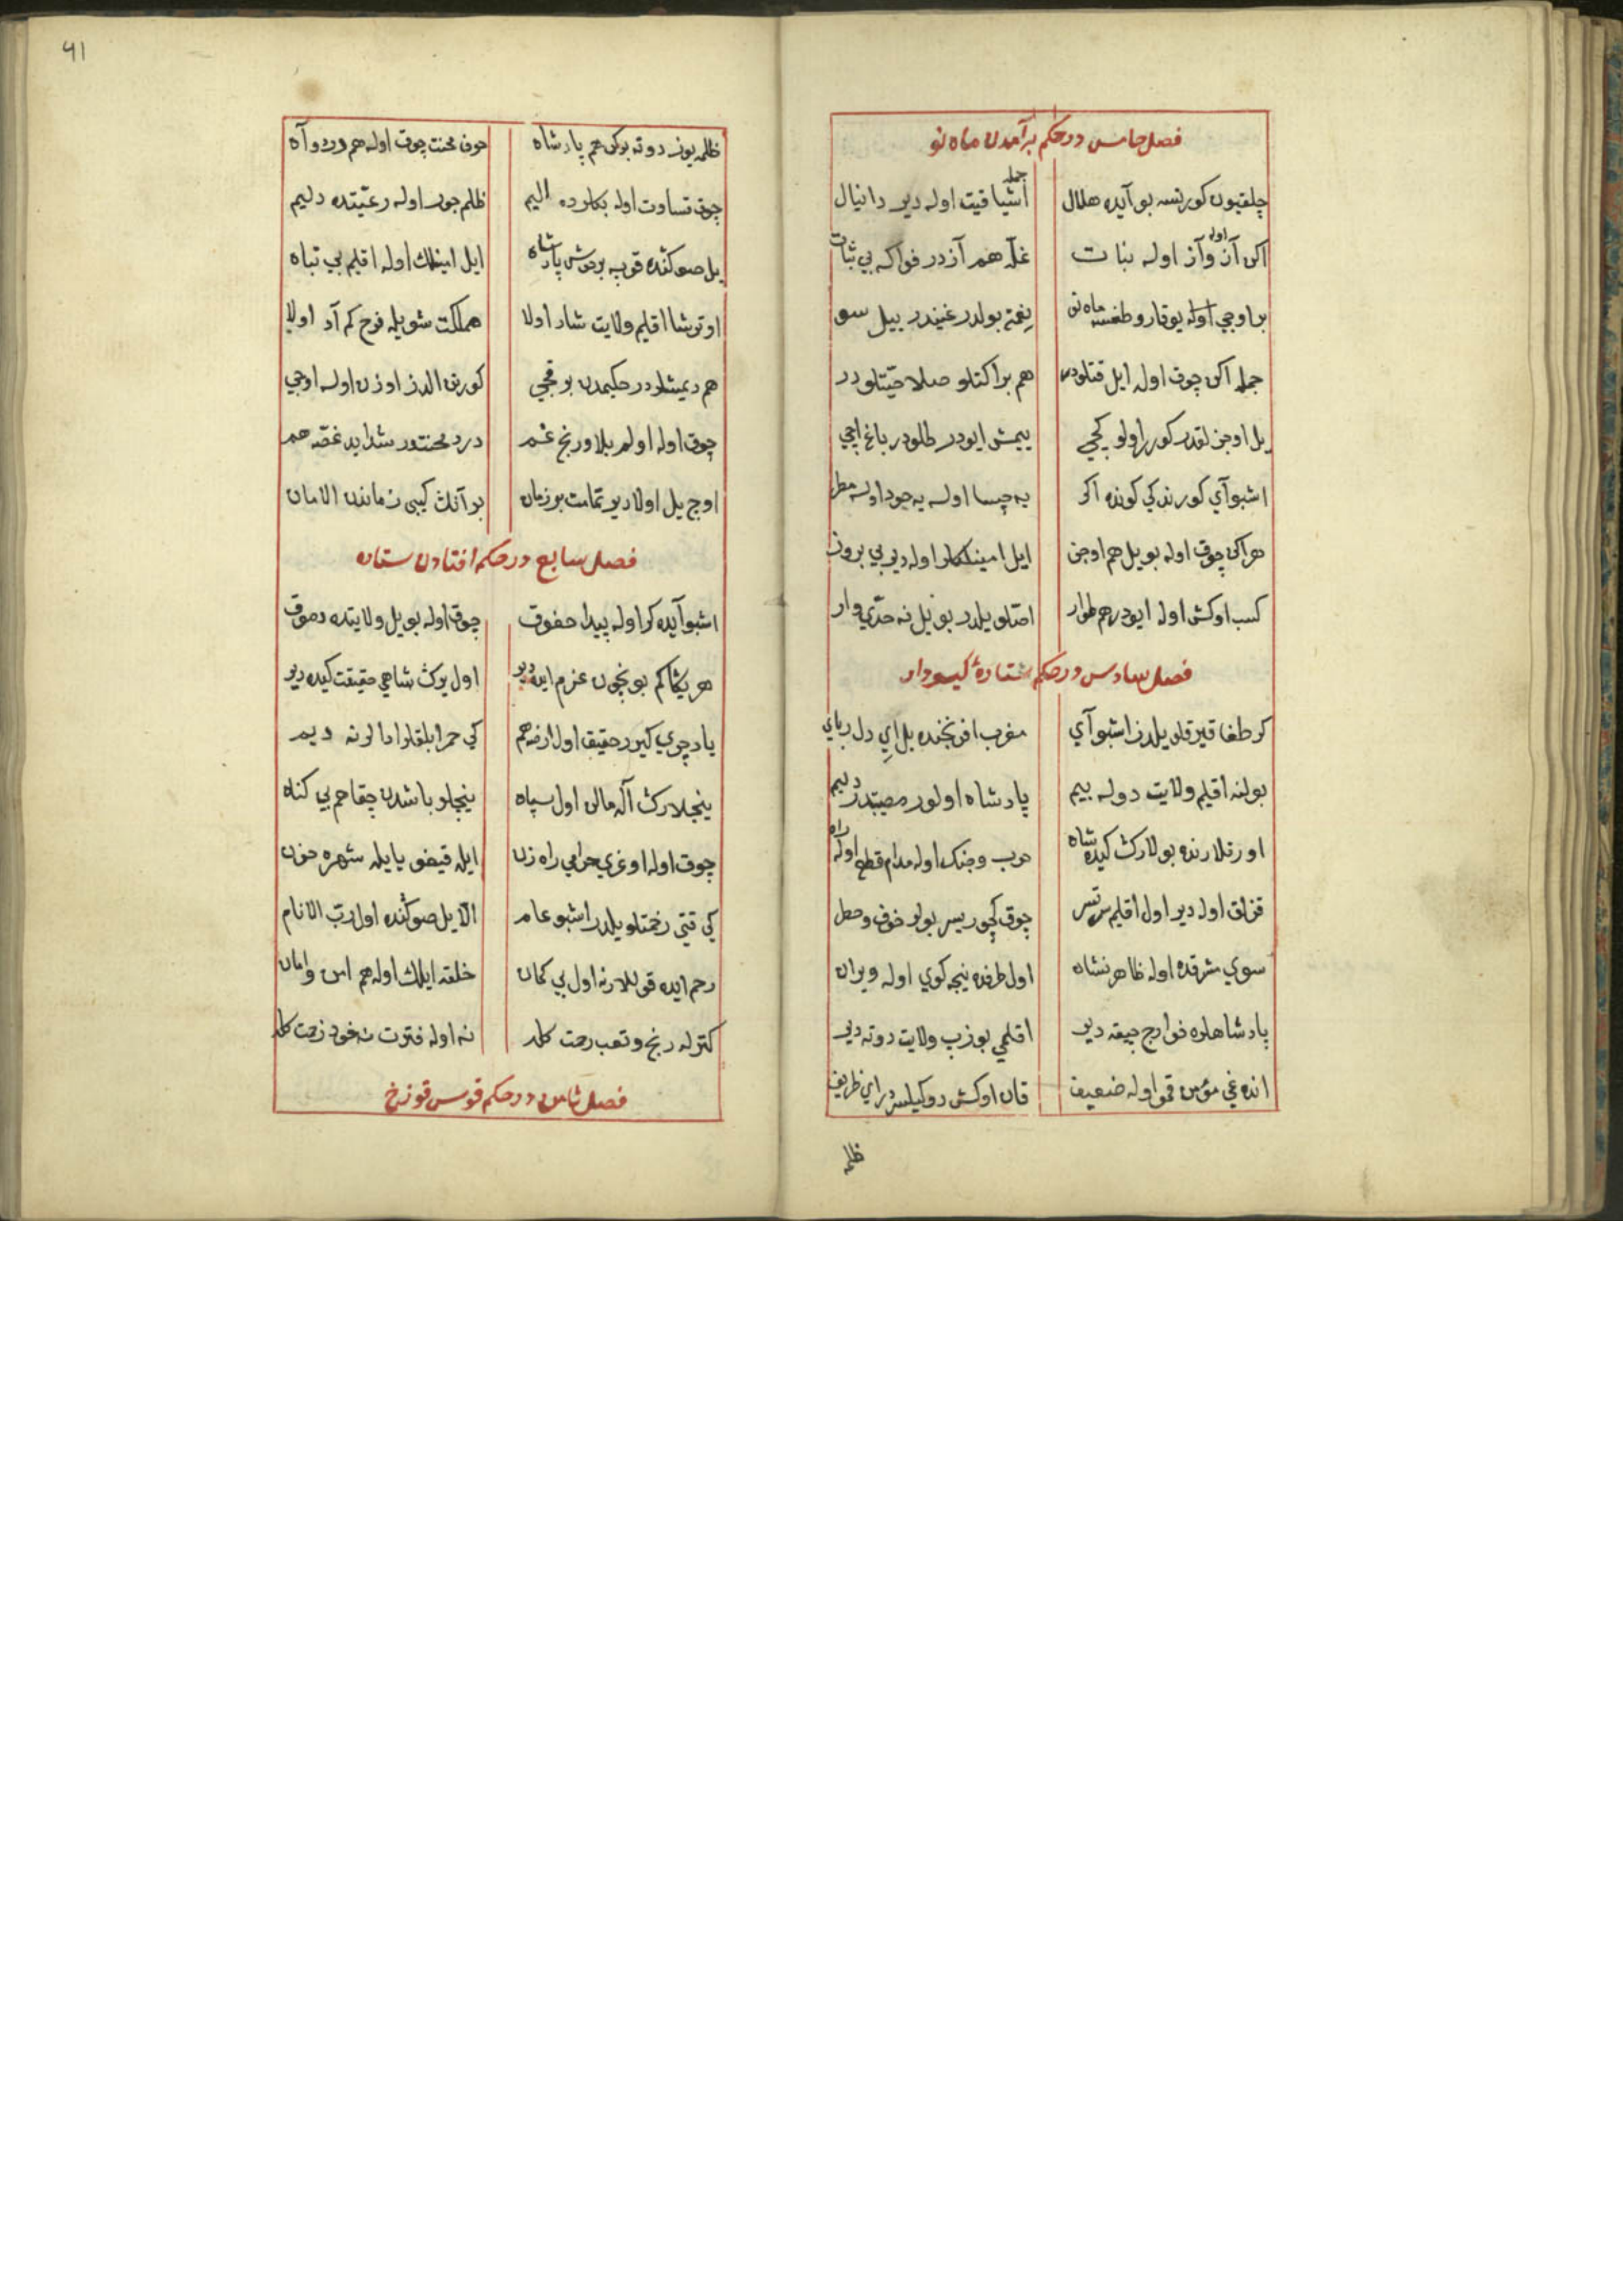 فصل خامس در حکم برآمدن ماه نو
چلقیون کورنسه بو آیده هلال جمله اشیا قیت اوله دیر دانیال
اکن آز اوله وآز اوله نبات غله هم آزدر فواکه بی ثبات
بر اوجی اوله یوقارو طغسه ماه نو یغمر بولدر غیندر ییل سو
جمله اکن چوق اوله ایل قتلودر هم براکتلو صلاحیتلودر
ییل اوجن لقدر کورر اولو کچی ییمش ایودر طلودر باغ ایچی
اشبو آی کورندکی کونده اکر یه چیسا اوله یه جود اوله مطر
هر اکن چوق اوله بو ییل هم اوجن ایل امینلکلر اوله دیر بی برون
کسب اوکش اوله ایودر هم طوار اصلو ییلدر بو ییل نه حدی وار
فصل سادس در حکم ستارهٔ کیسودار
کر طغا قیرقلو یلدز اشبو آی مغرب افرنجنده بل ای دل ربای
بولنه اقلیم ولایت دوله بیم پادشاه اولور مصیبتدر دلیم
اورتلارنده بولارک کیده شاه حرب وجنک اوله مدام قطع اوله راه
قزلق اوله دیر اول اقلیم سرتسر چوق کچوریسر بولر خوف وحطر
سوی مشرقده اوله ظاهر نشان اول طرفده نیجه کوی اوله ویران
پادشاهلره خوارج چیقه دیر اقلمی بوزب ولایت دوته دیر
انده غی مؤمن قمو اوله ضعیف قان اوکش دوکیلسردر ای ظریف
ظلمه
ظلمه یوز دوته بوکن هم پادشاه خوف محنت چوق اوله هم درد وآه
چوق قساوت اوله بکلرده الیم ظلم جور اوله رعیتده دلیم
ییل صوکنده قوپه بر خوش پادشاه ایل امینلک اوله اقلیم بی تباه
اوترشا اقلیم ولایت شاد اولا مملکت شویله فرح کم آد اولا
هم دیمشلردر حکیمدن بو قچی کورنن الدز اوزن اوله اوجی
چوق اوله اولم بلا ورنج غم درد محنتدر شداید غصه هم
اوج ییل اولا دیر تمامت بو زمان بو آنک کیبی زماندن الامان
فصل سابع در حکم افتادن ستاره
اشبو آیده کر اوله پیدا حفوق چوق اوله بو ییل ولایتده دموق
هر یکا کم بو نجون عزم ایده دیر اول یرک شاهی حقیقت کیده دیر
یاد چری کیرر حقیق اول ارضه هم کی حرابلقلر ادا لرنه دیم
ینجلارک آله مالن اول سپاه ینجلو باشدن چقا جم بی کناه
چوق اوله اوغری حرامی راه زن ایله قیغو یایله شهره حزن
کی قتی زخمتلو ییلدر اشبو عام الا ییل صوکنده اول رب الانام
رحم ایده قوللارنه اول بی کمان خلقه ایلک اوله هم امن وامان
کتر له رنج وتعب رحمت کله نه اوله فترت نه خود زحمت کله
فصل ثامن در حکم قوس قوزخ